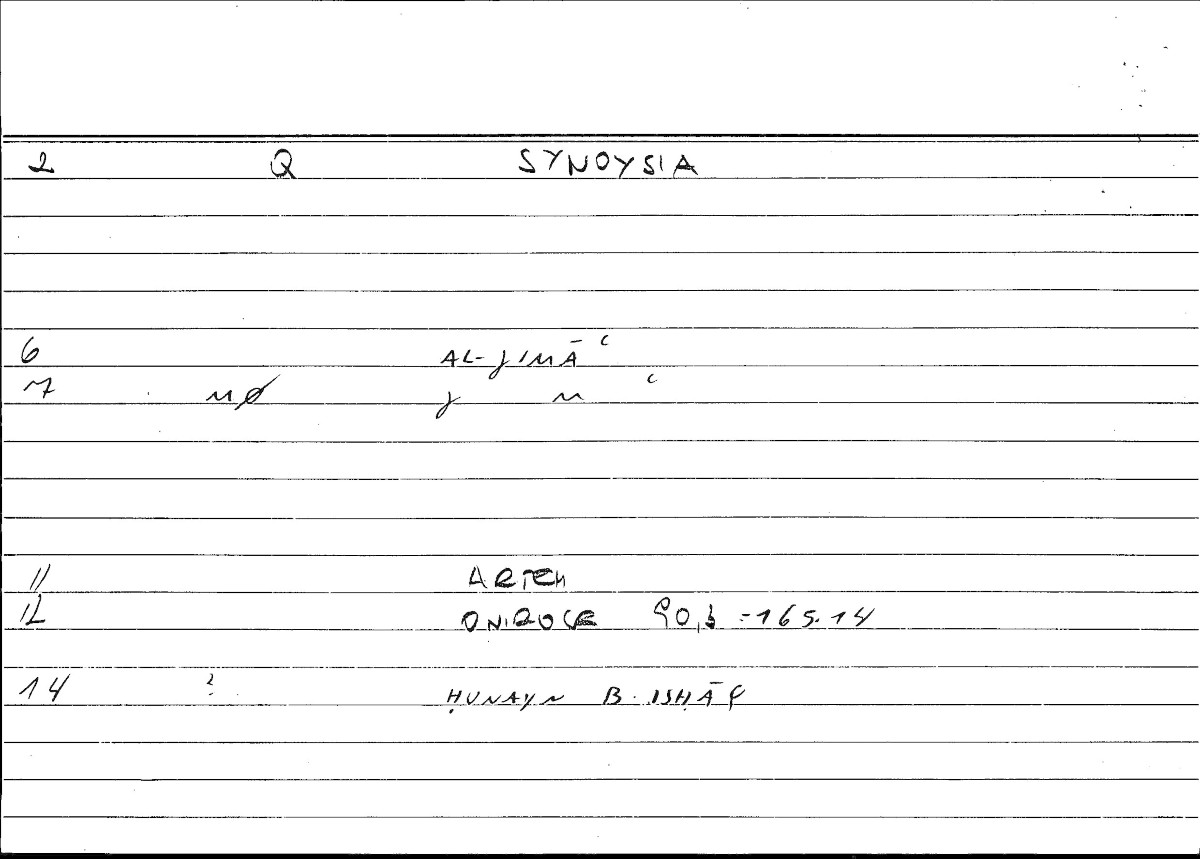 2 Q SYNOYSIA
6 AL-JIMĀʿ
7 MØ J M ʿ
11 ARTEM
12 ONIROCR 90, = 165.14
14 ? ḤUNAYN B. ISḤĀQ